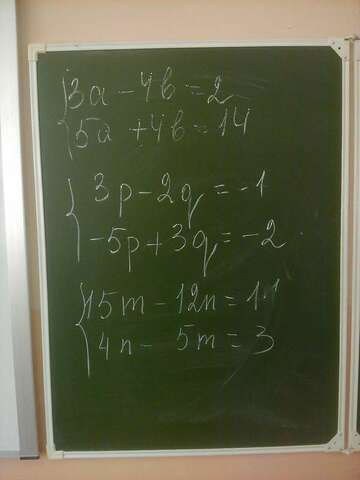 3a - 4b = 2
5a + 4b = 14
3p - 2q = -1
-5p + 3q = -2
15m - 12n = 1.1
4n - 5m = 3